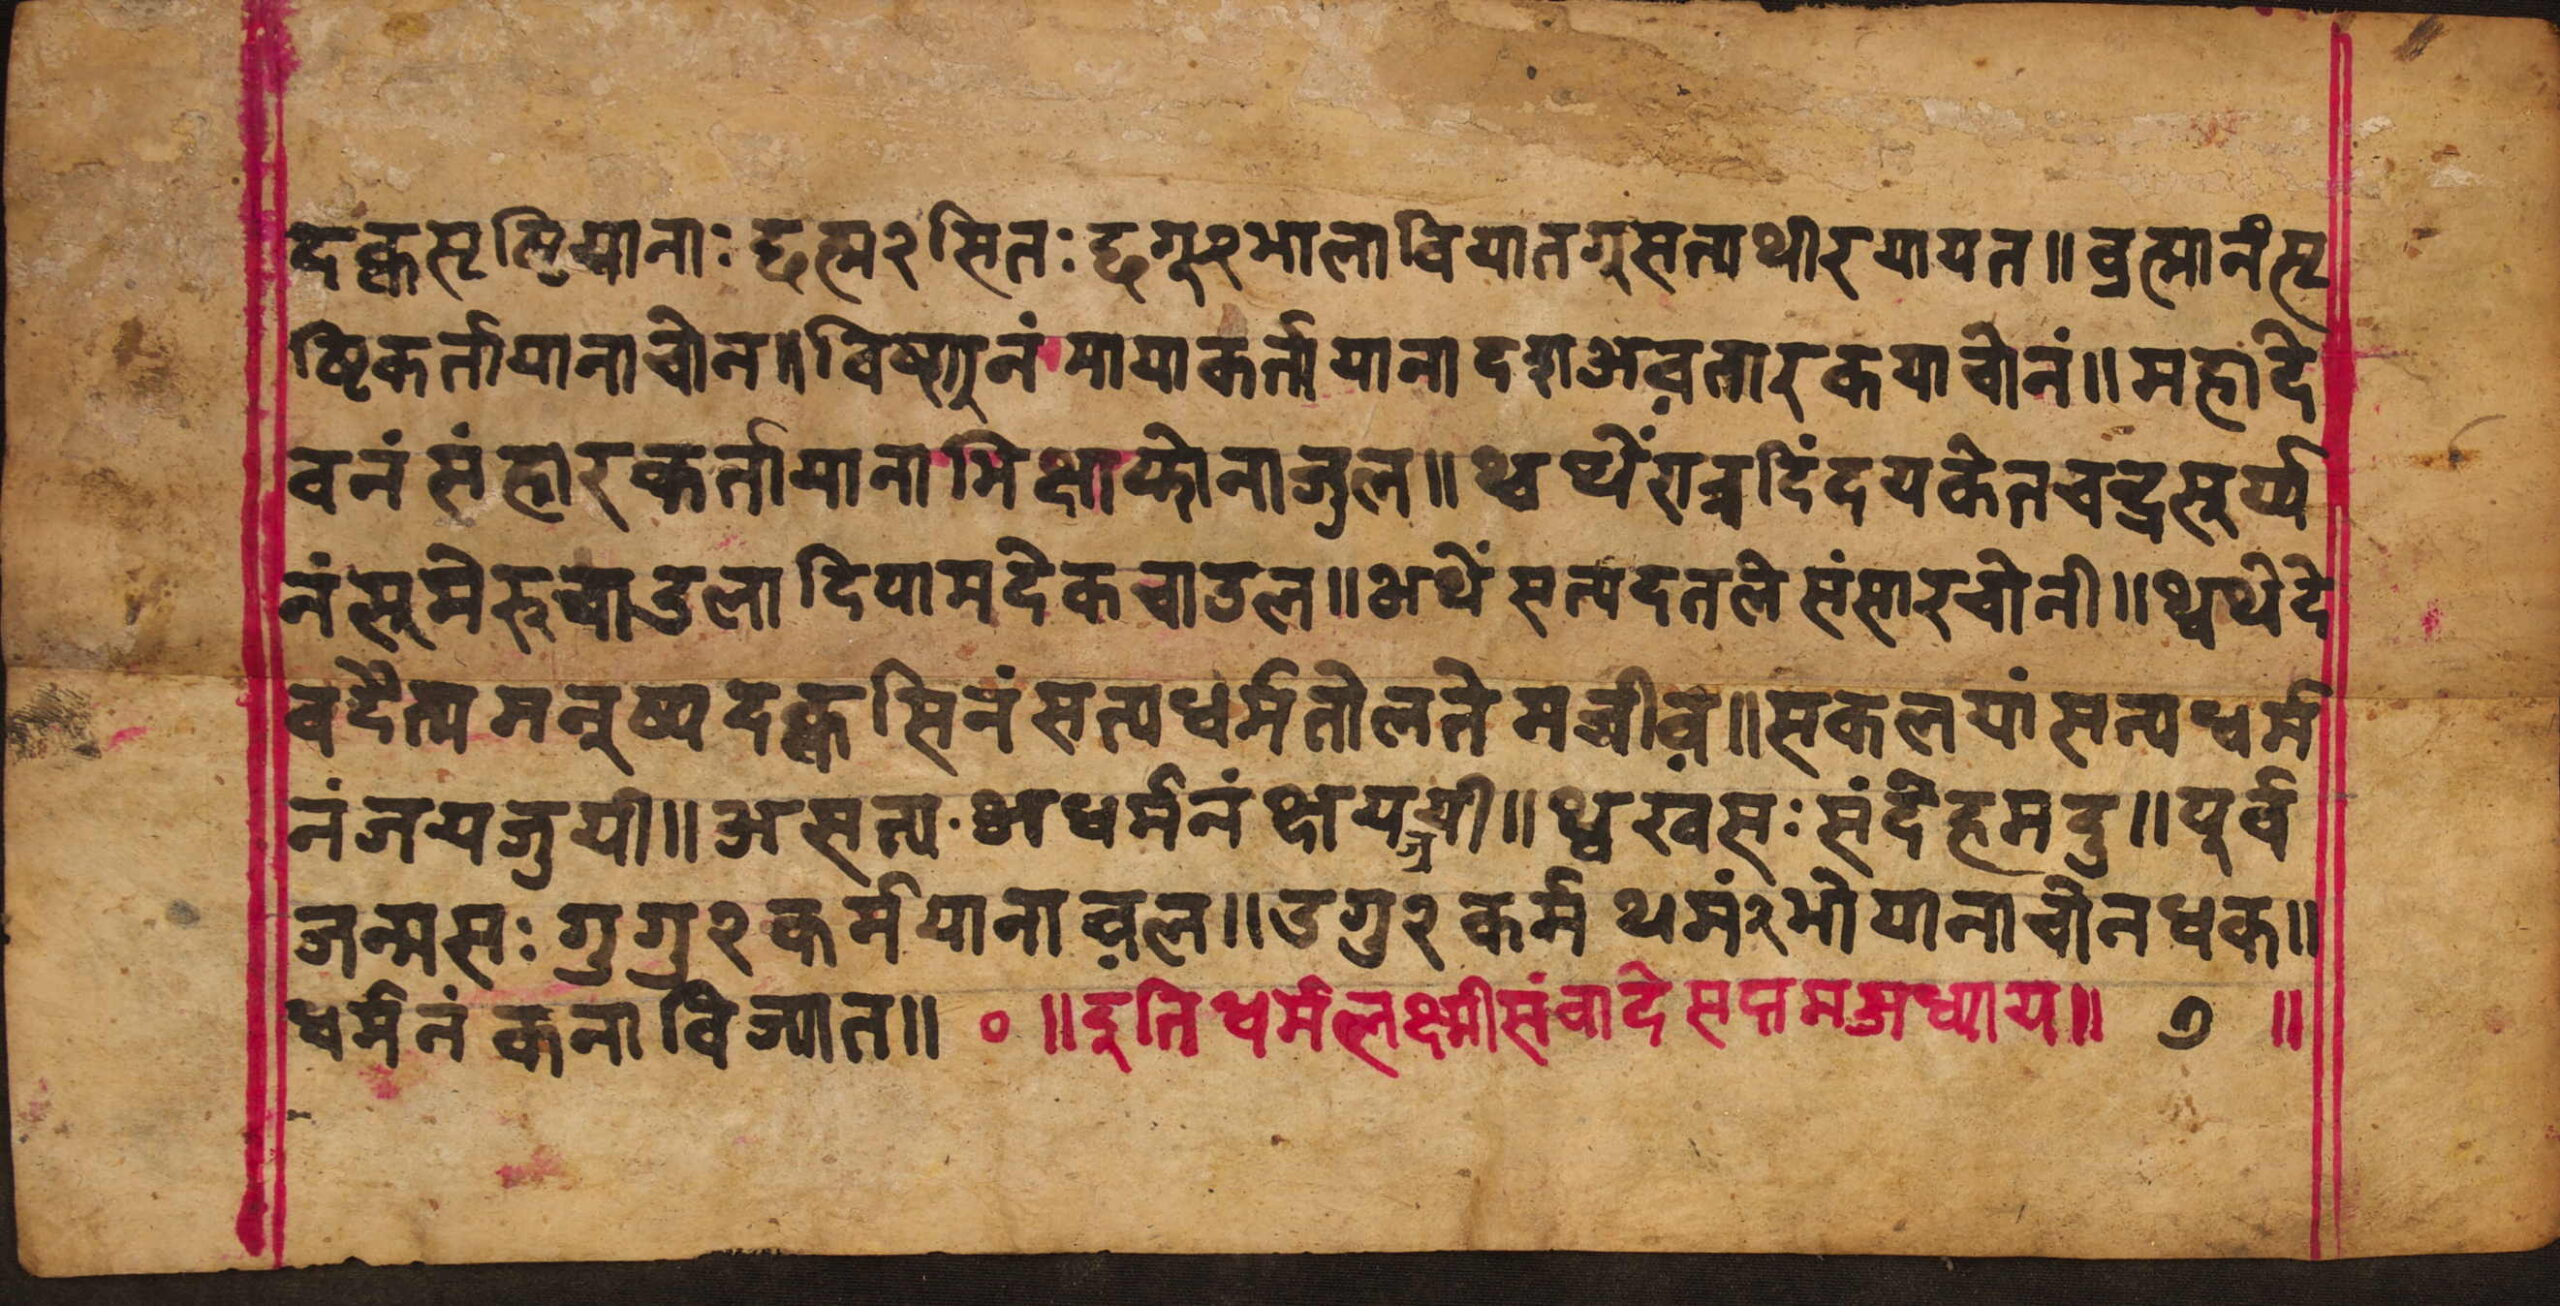 दक्वसृष्टियानाः द्दह्म२सितः द्दगू२भालावियातगुसत्यथीरयायत॥ ब्रह्मानंसृ
ष्टिकर्तायानाचोन॥विष्णुनं मायाकर्तायानादशअव़तारकयाचोनं॥महादे
वनं संहारकर्तायानाभिक्षाफोनाजुल॥ थ्वथ्यें रात्रदिंदयकेतचन्द्रसूर्य्य
नं सूमेरुचाउलादियामदेकचाउल॥अथें सत्यदतले संसारचोनी॥थ्वथेदे
वदैत्यमनुष्यदक्वसिनं सत्यधर्मतोलतेमज्वीव़॥सकलयां सत्यधर्म
नं जययुयी॥असत्य·अधर्मनं क्षयजुयी॥थ्वखंसः संदेहमदु॥पूर्व
जन्मसः गुगु२कर्मयानाव़ल॥उगु२कर्म थमं२भोयानाचोनधक॥
धर्मनं कनाविज्यात॥ ० ॥इति धर्मलक्ष्मीसंवादे सप्तमअध्याय॥ ७ ॥